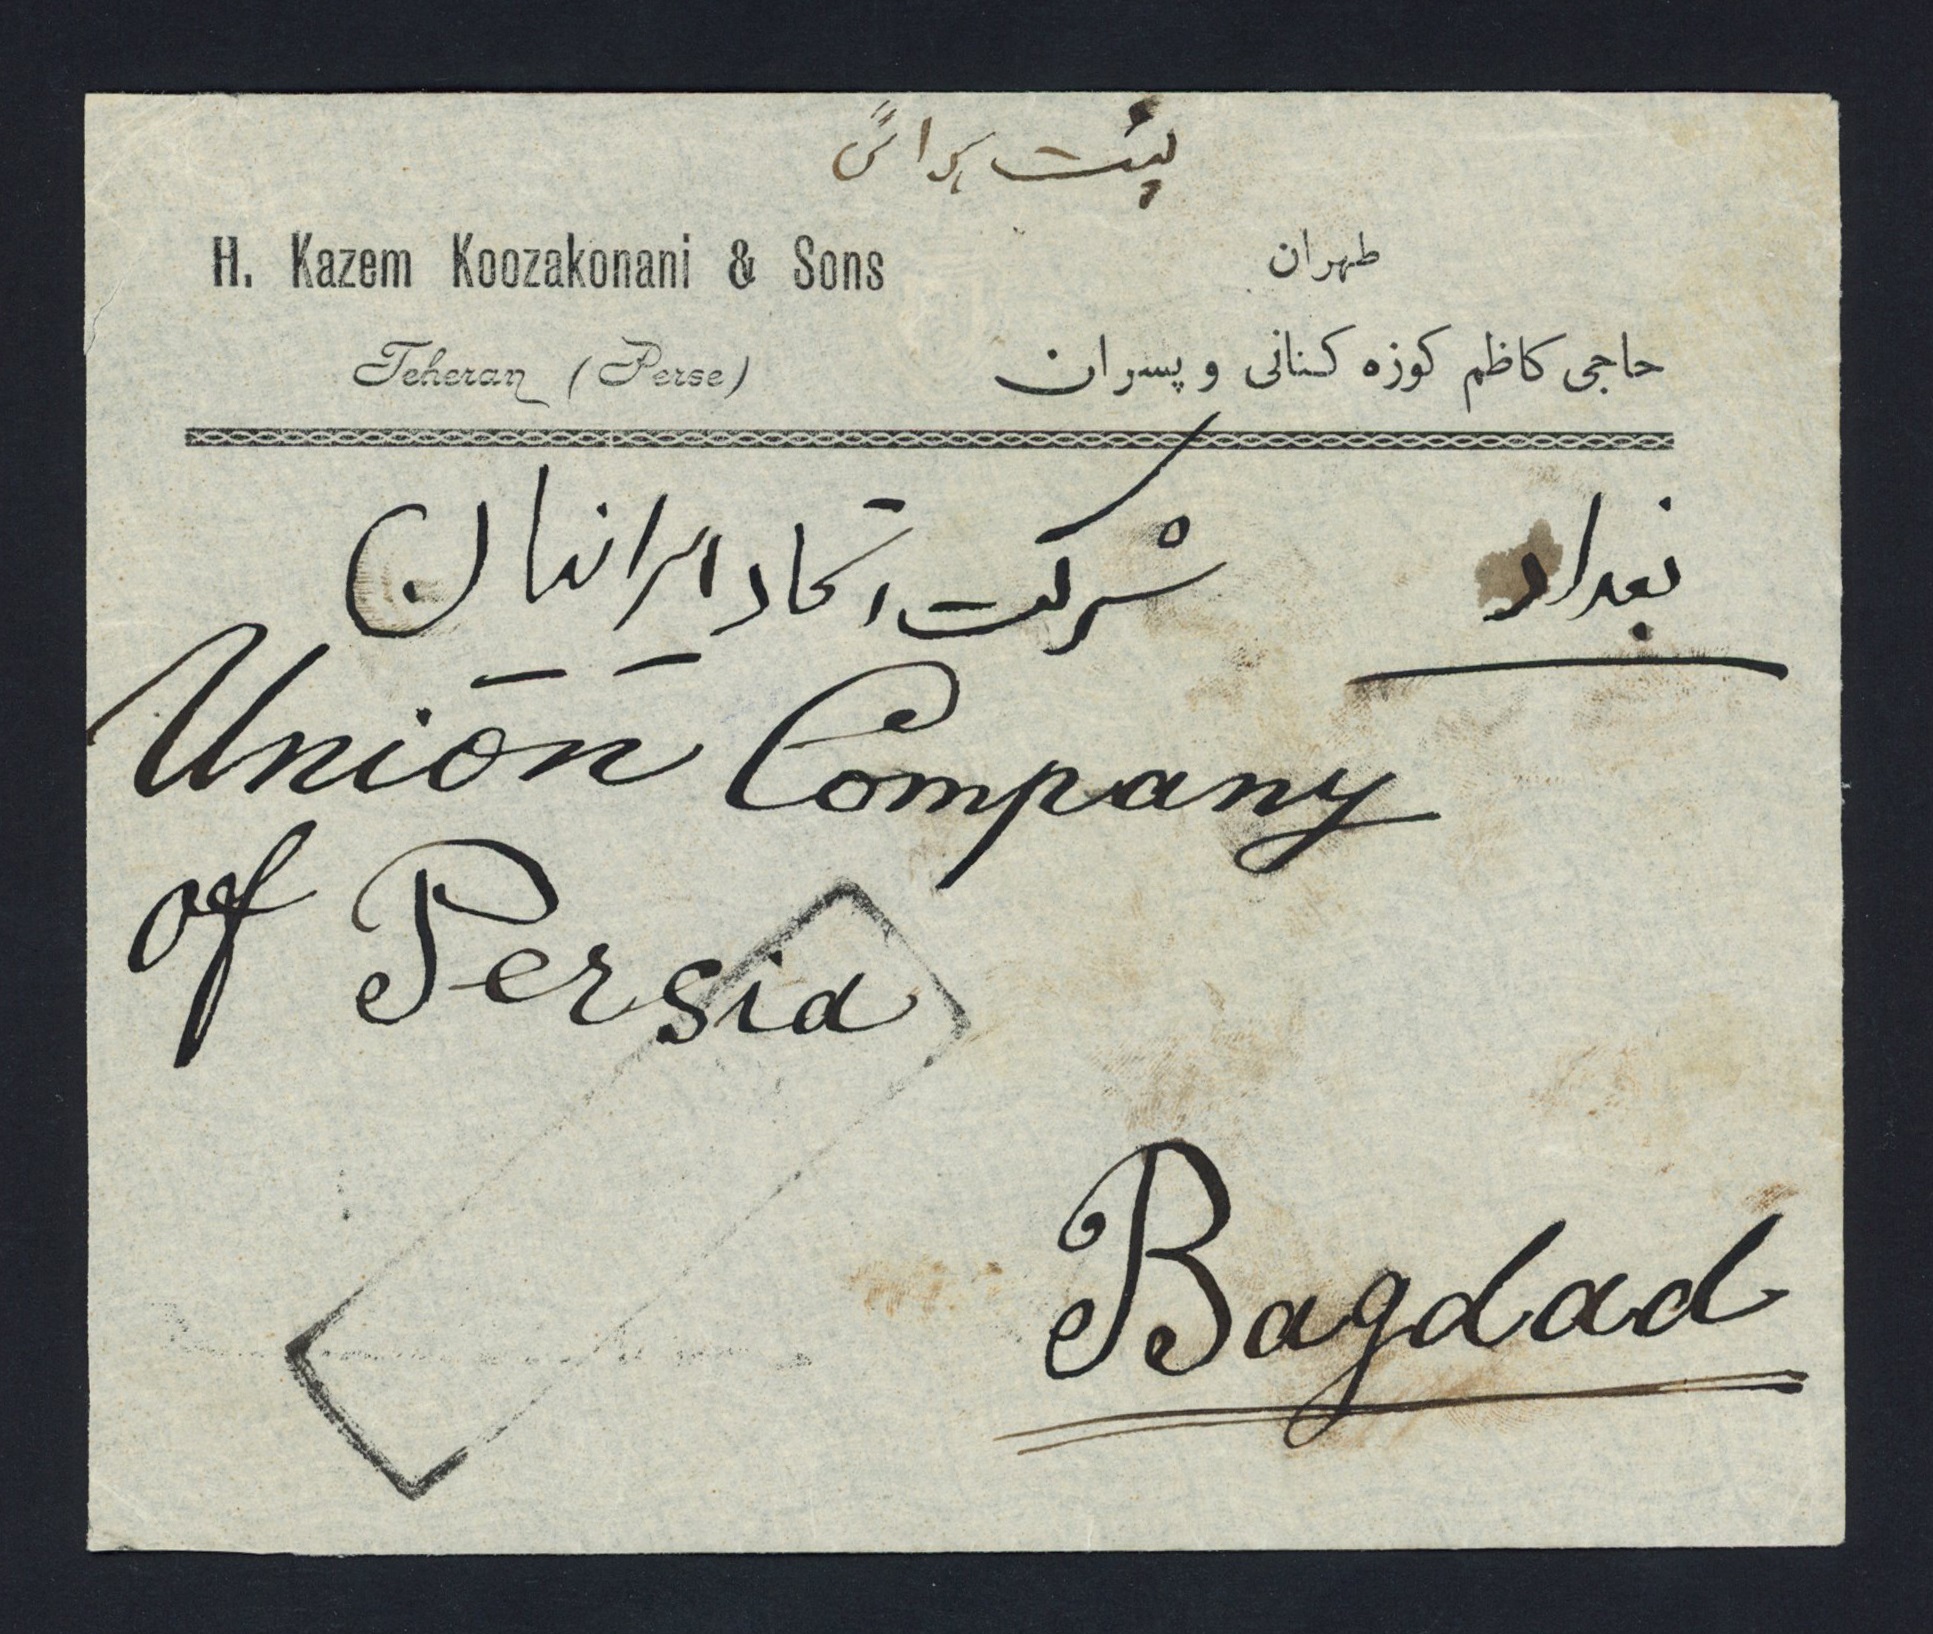 H. Kazem Koozakonani & Sons
Teheran (Perse)
طهران
حاجی کاظم کوزه کنانی و پسران
بغداد
شرکت اتحاد ایرانیان
Union Company
of Persia
Bagdad